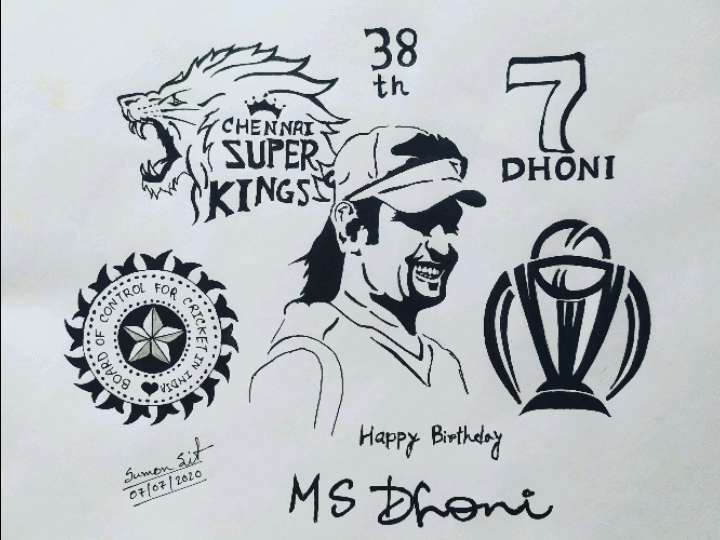 38
th
7
DHONI
CHENNAI
SUPER
KINGS
BOARD OF CONTROL FOR CRICKET IN INDIA
Happy Birthday
Sumon Sit
07/07/2020
MS Dhoni